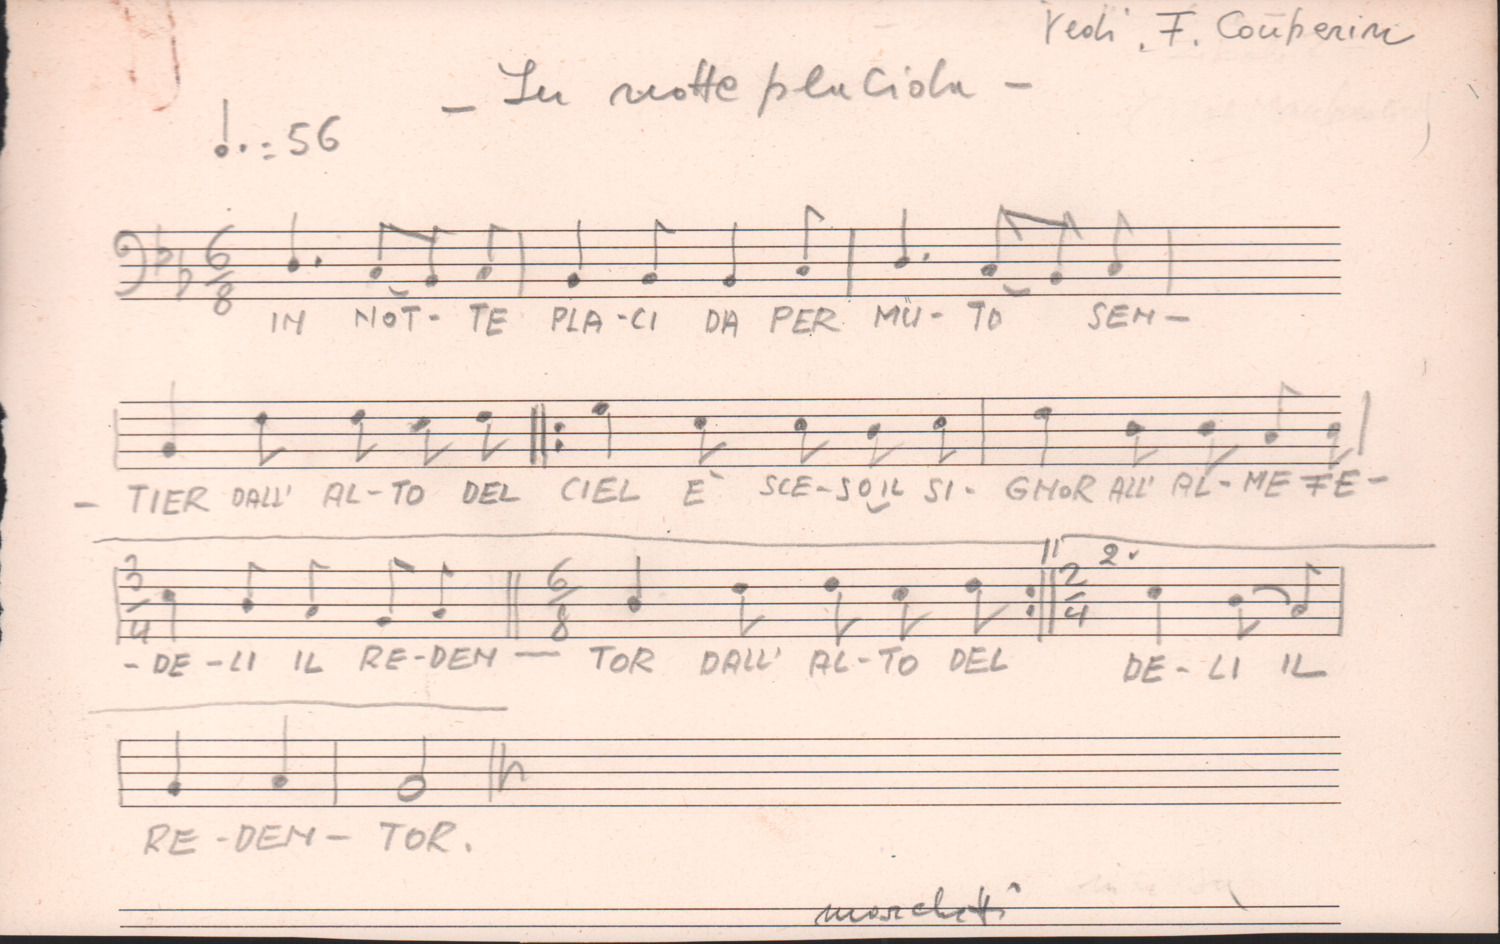 Vedi F. Couperin
- In notte placida -
♩. = 56
6/8
IN NOT - TE PLA - CI DA PER MU - TO SEN -
- TIER DALL' AL - TO DEL CIEL È SCE - SO IL SI - GNOR ALL' AL - ME FE -
3/4 6/8 2. 2/4
- DE - LI IL RE - DEN - TOR DALL' AL - TO DEL DE - LI IL
RE - DEN - TOR.